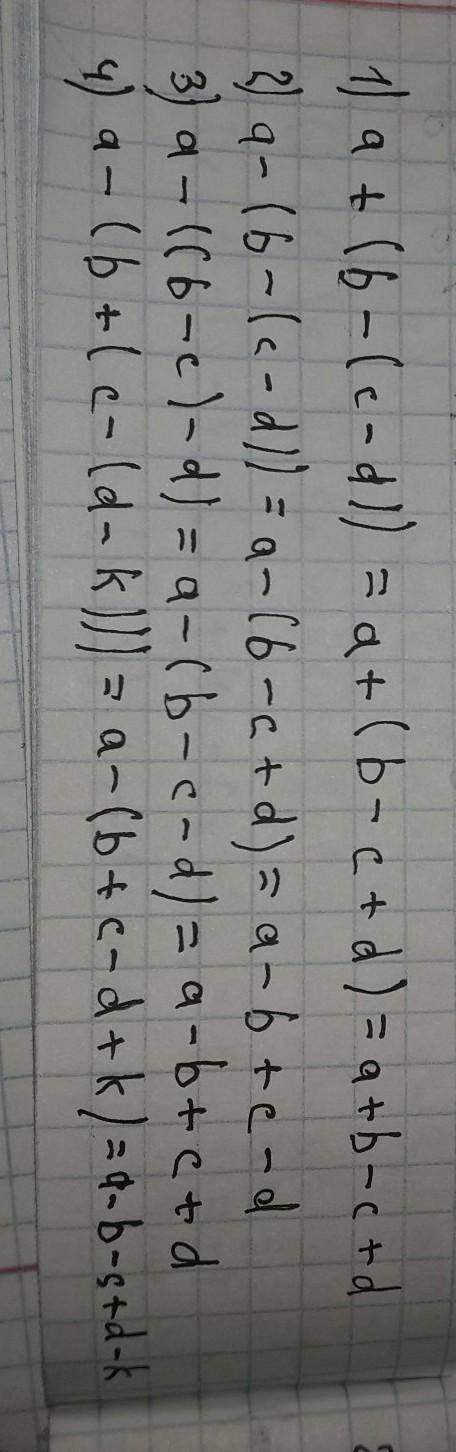 1) a + (b - (c - d)) = a + (b - c + d) = a + b - c + d
2) a - (b - (c - d)) = a - (b - c + d) = a - b + c - d
3) a - ((b - c) - d) = a - (b - c - d) = a - b + c + d
4) a - (b + (c - (d - k))) = a - (b + c - d + k) = a - b - c + d - k